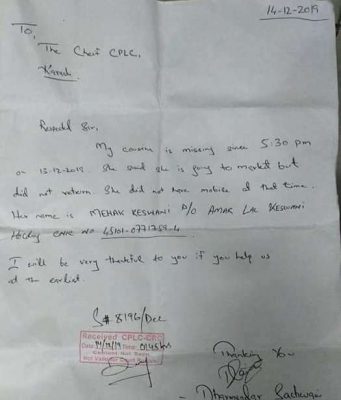 14-12-2019
To,
The Chief CPLC,
Karachi.
Respected Sir,
My cousin is missing since 5:30 pm
on 13-12-2019. She said she is going to market but
did not return. She did not have mobile at that time.
Her name is MEHAK KESWANI D/O AMAR LAL KESWANI
CNIC NO 45101-0771759-4
I will be very thankful to you if you help us
at the earliest.
S# 8196/Dec
Received CPLC-CRC
Date: 14/12/19 Time: 0145hrs
Content Not Seen
Not Valid for Court
Thanking You
Dharmendar